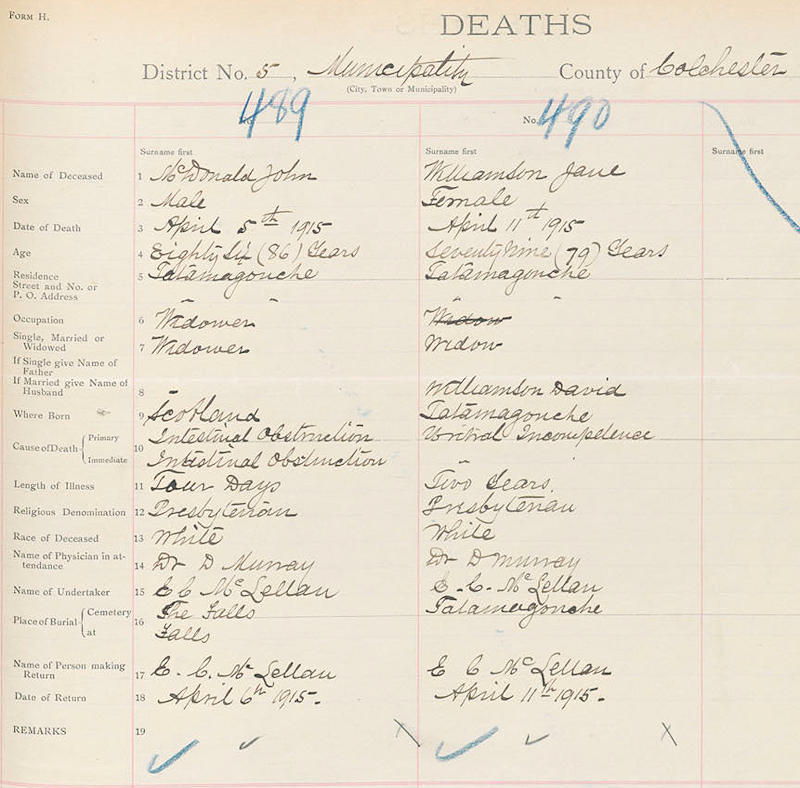 FORM H.
DEATHS
District No. 5, Municipality County of Colchester
(City, Town or Municipality)
489 No. 490
Surname first Surname first Surname first
Name of Deceased 1 McDonald John Williamson Jane
Sex 2 Male Female
Date of Death 3 April 5th 1915 April 11th 1915
Age 4 Eighty Six (86) Years Seventy Nine (79) Years
Residence
Street and No. or 5 Tatamagouche Tatamagouche
P. O. Address
Occupation 6 Widower Widow
Single, Married or
Widowed 7 Widower Widow
If Single give Name of
Father
If Married give Name of
Husband 8 - Williamson David
Where Born 9 Scotland Tatamagouche
Cause of Death Primary 10 Intestinal Obstruction Incompedence
Immediate Intestinal Obstruction
Length of Illness 11 Four Days Two Years
Religious Denomination 12 Presbyterian Presbyterian
Race of Deceased 13 White White
Name of Physician in at-
tendance 14 Dr D Murray Dr D Murray
Name of Undertaker 15 E C McLellan E. C. McLellan
Place of Burial Cemetery 16 The Falls Tatamagouche
at Falls
Name of Person making
Return 17 E. C. McLellan E C McLellan
Date of Return 18 April 6th 1915. April 11th 1915.
REMARKS 19